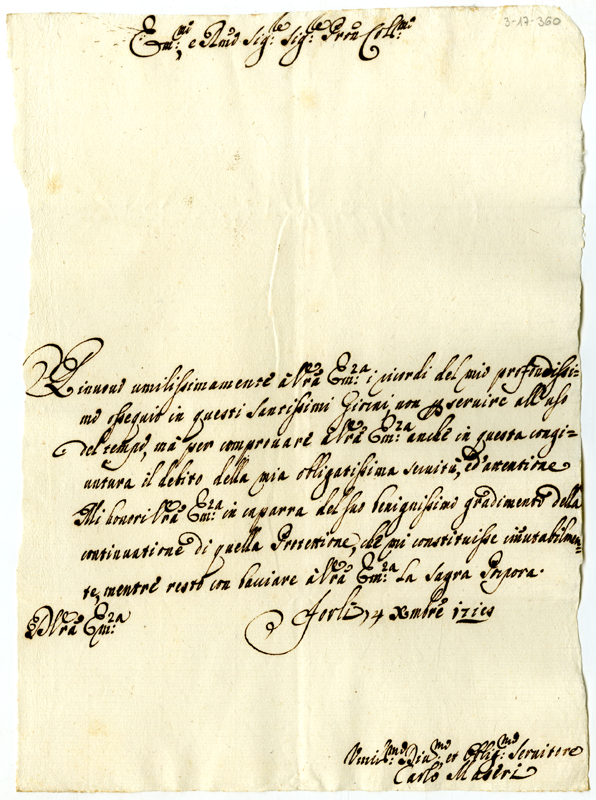 3-17-360
Em:mo e Rmo Sig:re Sig:re Pron Coll:mo
Rinuovo umilissimamente à Vrã Em:za i ricordi del mio profondissi=
mo ossequio in questi Santissimi Giorni non p servire all'uso
del tempo, mà per comprovare à Vrã Em:za anche in questa congi=
untura il debito della mia obligatissima servitù, ed'attentione
Mi honori Vrã Em:za in caparra del suo benignissimo gradimento della
continuatione di quella Protetione, che mi constituisse immutabilmen=
te, mentre resto con bacciare à Vrã Em:za la Sagra Porpora.
Forlì, 4 Xmbre
D Vrã Em:za
Umil:mo Diu:mo et Oblig:mo Servitore
Carlo